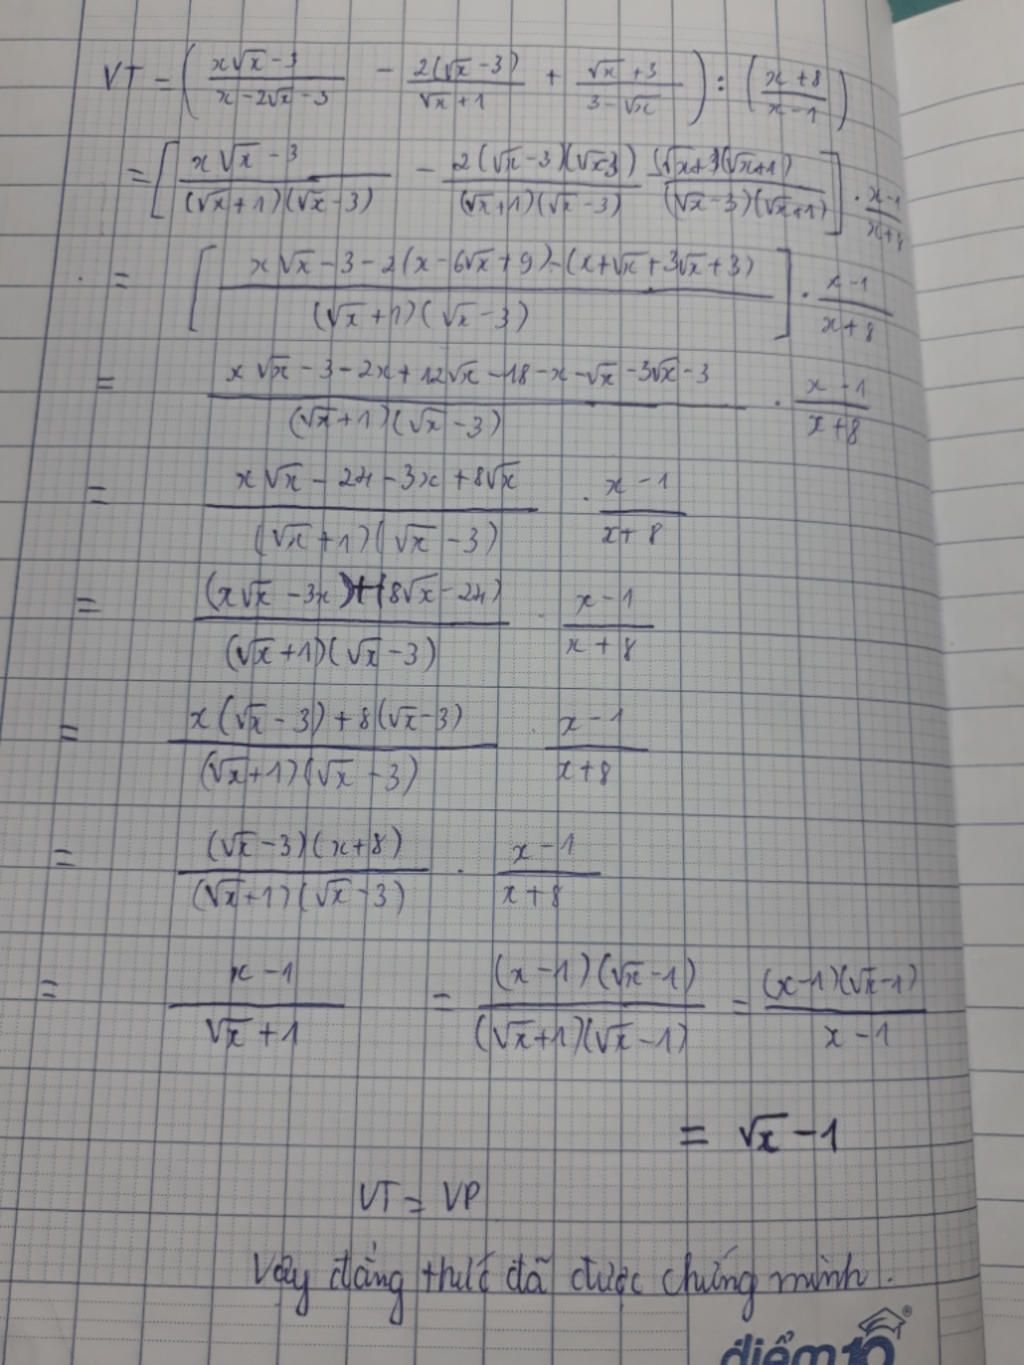 VT = ( (x√x - 3)/(x - 2√x - 3) - 2(√x - 3)/(√x + 1) + (√x + 3)/(3 - √x) ) : ( (x + 8)/(x - 1) )
= [ (x√x - 3)/((√x + 1)(√x - 3)) - 2(√x - 3)(√x - 3)/((√x + 1)(√x - 3)) - (√x + 3)(√x + 1)/((√x - 3)(√x + 1)) ] . (x - 1)/(x + 8)
= [ (x√x - 3 - 2(x - 6√x + 9) - (x + √x + 3√x + 3))/((√x + 1)(√x - 3)) ] . (x - 1)/(x + 8)
= (x√x - 3 - 2x + 12√x - 18 - x - √x - 3√x - 3)/((√x + 1)(√x - 3)) . (x - 1)/(x + 8)
= (x√x - 24 - 3x + 8√x)/((√x + 1)(√x - 3)) . (x - 1)/(x + 8)
= ((x√x - 3x) + (8√x - 24))/((√x + 1)(√x - 3)) . (x - 1)/(x + 8)
= (x(√x - 3) + 8(√x - 3))/((√x + 1)(√x - 3)) . (x - 1)/(x + 8)
= ((√x - 3)(x + 8))/((√x + 1)(√x - 3)) . (x - 1)/(x + 8)
= (x - 1)/(√x + 1) = ((x - 1)(√x - 1))/((√x + 1)(√x - 1)) = ((x - 1)(√x - 1))/(x - 1)
= √x - 1
VT = VP
Vậy đẳng thức đã được chứng minh.
điểm 10